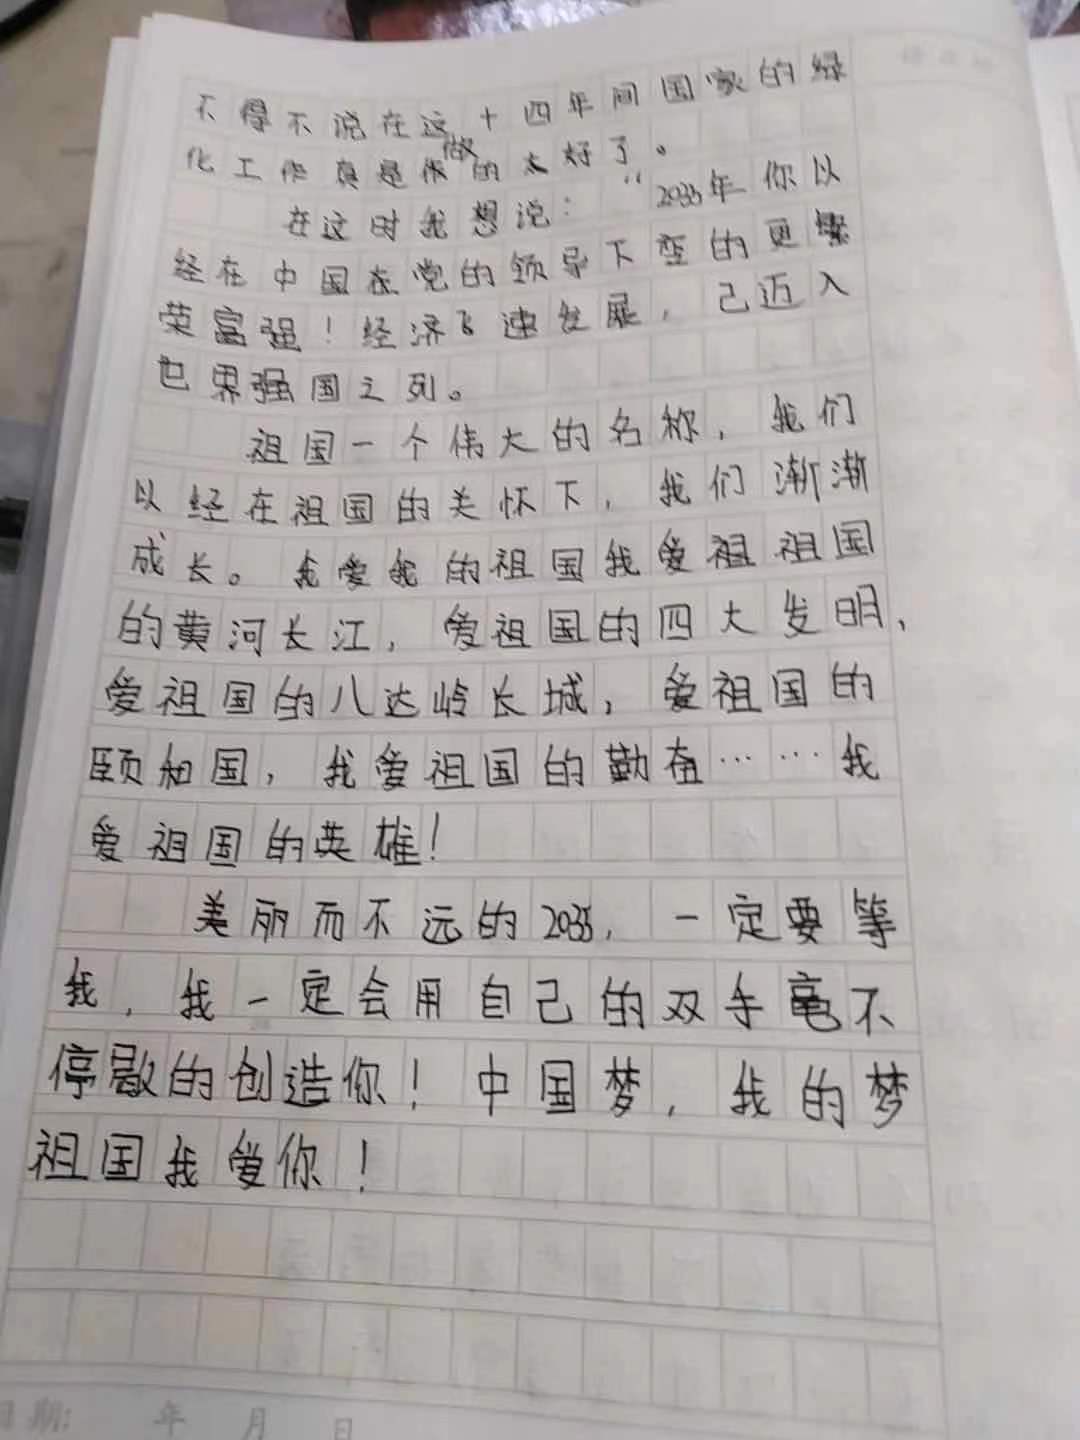 不得不说在这十四年间国家的绿
化工作真是做的太好了。
在这时我想说：“2035年你以
经在中国在党的领导下变的更繁
荣富强！经济飞速发展，己迈入
世界强国之列。
祖国一个伟大的名称，我们
以经在祖国的关怀下，我们渐渐
成长。我爱我的祖国我爱祖祖国
的黄河长江，爱祖国的四大发明，
爱祖国的八达岭长城，爱祖国的
颐和国，我爱祖国的勤奋……我
爱祖国的英雄！
美丽而不远的2035，一定要等
我，我一定会用自己的双手毫不
停歇的创造你！中国梦，我的梦
祖国我爱你！
日期：年月日